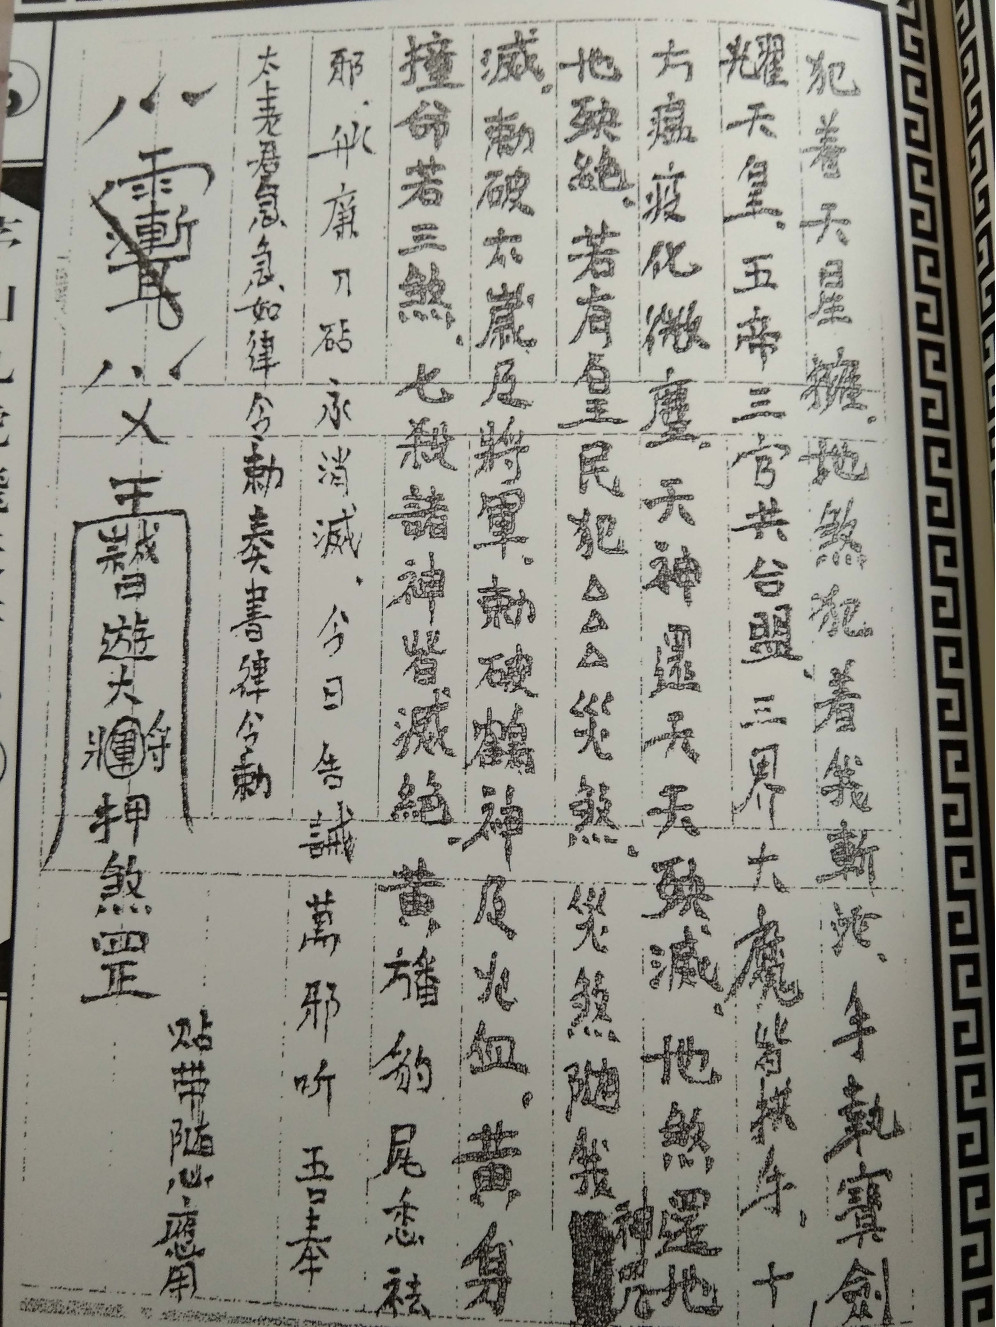 犯着天星摧、地煞犯着我斬死、手執寶劍
耀天皇、五帝三官共台盟、三界大魔皆拱手、十
方瘟疫化微塵、天神還天天殃滅、地煞還地
地殃絕、若有皇民犯△△△災煞、災煞隨我神咒
滅、勅破太歲及將軍、勅破鶴神及火血、黃身
撞命若三煞、七殺諸神皆滅絕、黃旛豹尾悉祛
邪、飛廉刀砧永消滅、今日告誡萬邪听 吾奉
太上老君急急如律令勅奏書律令勅
八 八
八 八 乂
王
遊大將軍符押煞罡
贴带随心應用